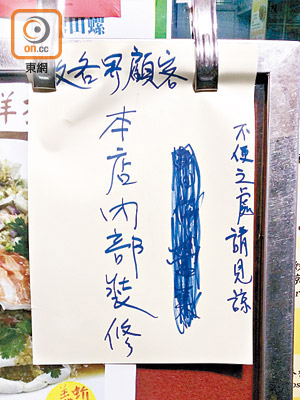 on.cc
東網
田螺
致各界顧客
本店內部裝修
不便之處請見諒